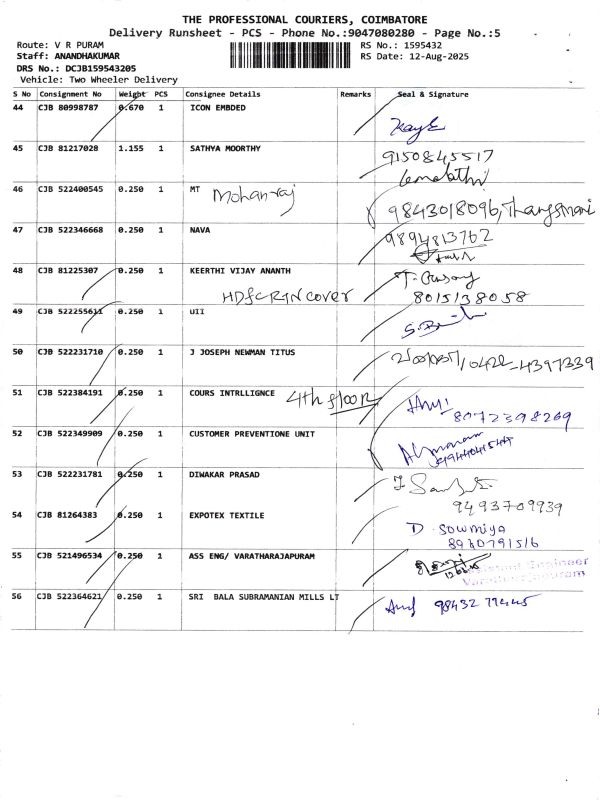 THE PROFESSIONAL COURIERS, COIMBATORE
Delivery Runsheet - PCS - Phone No.:9047080280 - Page No.:5
Route: V R PURAM RS No.: 1595432
Staff: ANANDHAKUMAR RS Date: 12-Aug-2025
DRS No.: DCJB159543205
Vehicle: Two Wheeler Delivery
S No Consignment No Weight PCS Consignee Details Remarks Seal & Signature
44 CJB 80998787 0.670 1 ICON EMBDED
45 CJB 81217028 1.155 1 SATHYA MOORTHY
9150845517
46 CJB 522400545 0.250 1 MT Mohanraj
9843018096, Thangamani
47 CJB 522346668 0.250 1 NAVA
9894813762
48 CJB 81225307 0.250 1 KEERTHI VIJAY ANANTH
HDFC RTN COVER 8015138058
49 CJB 522255611 0.250 1 UII
50 CJB 522231710 0.250 1 J JOSEPH NEWMAN TITUS
/0422-4397339
51 CJB 522384191 0.250 1 COURS INTRLLIGNCE 4th floor
8072398269
52 CJB 522349909 0.250 1 CUSTOMER PREVENTIONE UNIT
53 CJB 522231781 0.250 1 DIWAKAR PRASAD
9493709939
54 CJB 81264383 0.250 1 EXPOTEX TEXTILE
D. Sowmiya
8930791516
55 CJB 521496534 0.250 1 ASS ENG/ VARATHARAJAPURAM
Assistant Engineer
Varatharajapuram
56 CJB 522364621 0.250 1 SRI BALA SUBRAMANIAN MILLS LT